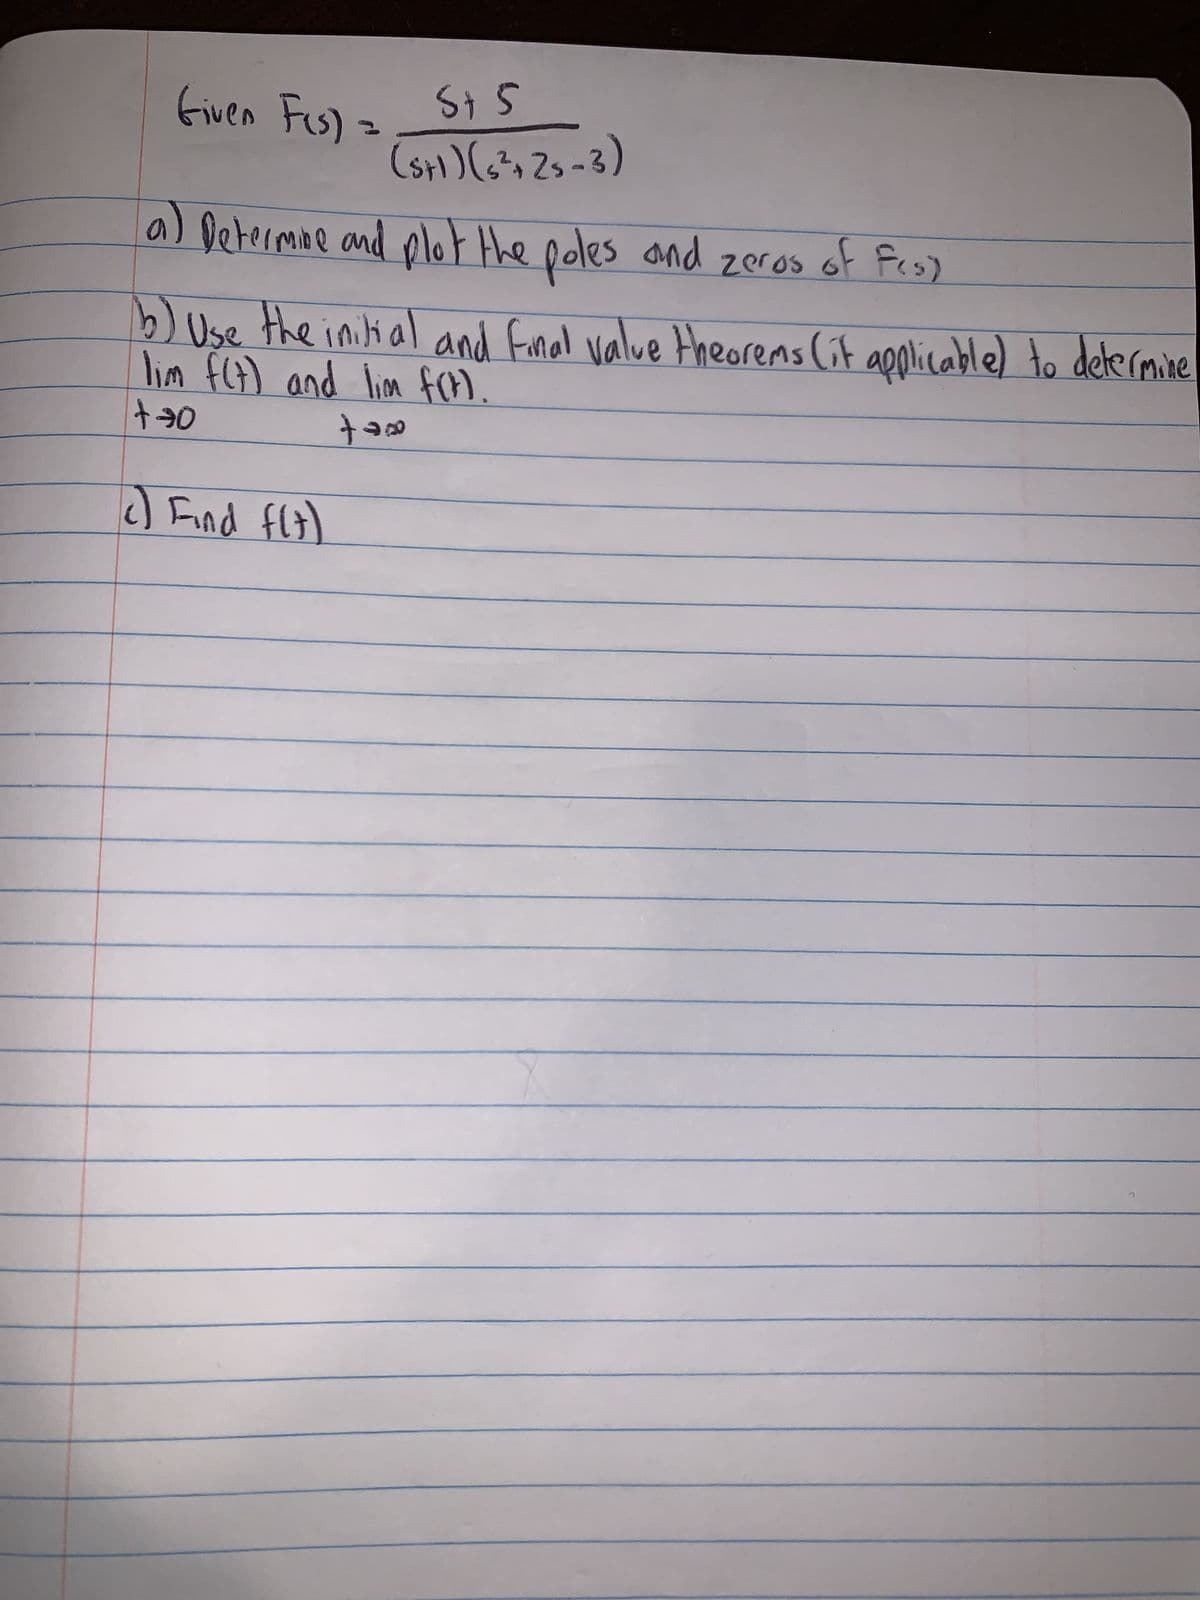 Given F(s) = s+5
(s+1)(s²+2s-3)
a) Determine and plot the poles and zeros of F(s)
b) Use the initial and final value theorems (if applicable) to determine
lim f(t) and lim f(t).
t→0 t→∞
c) Find f(t)